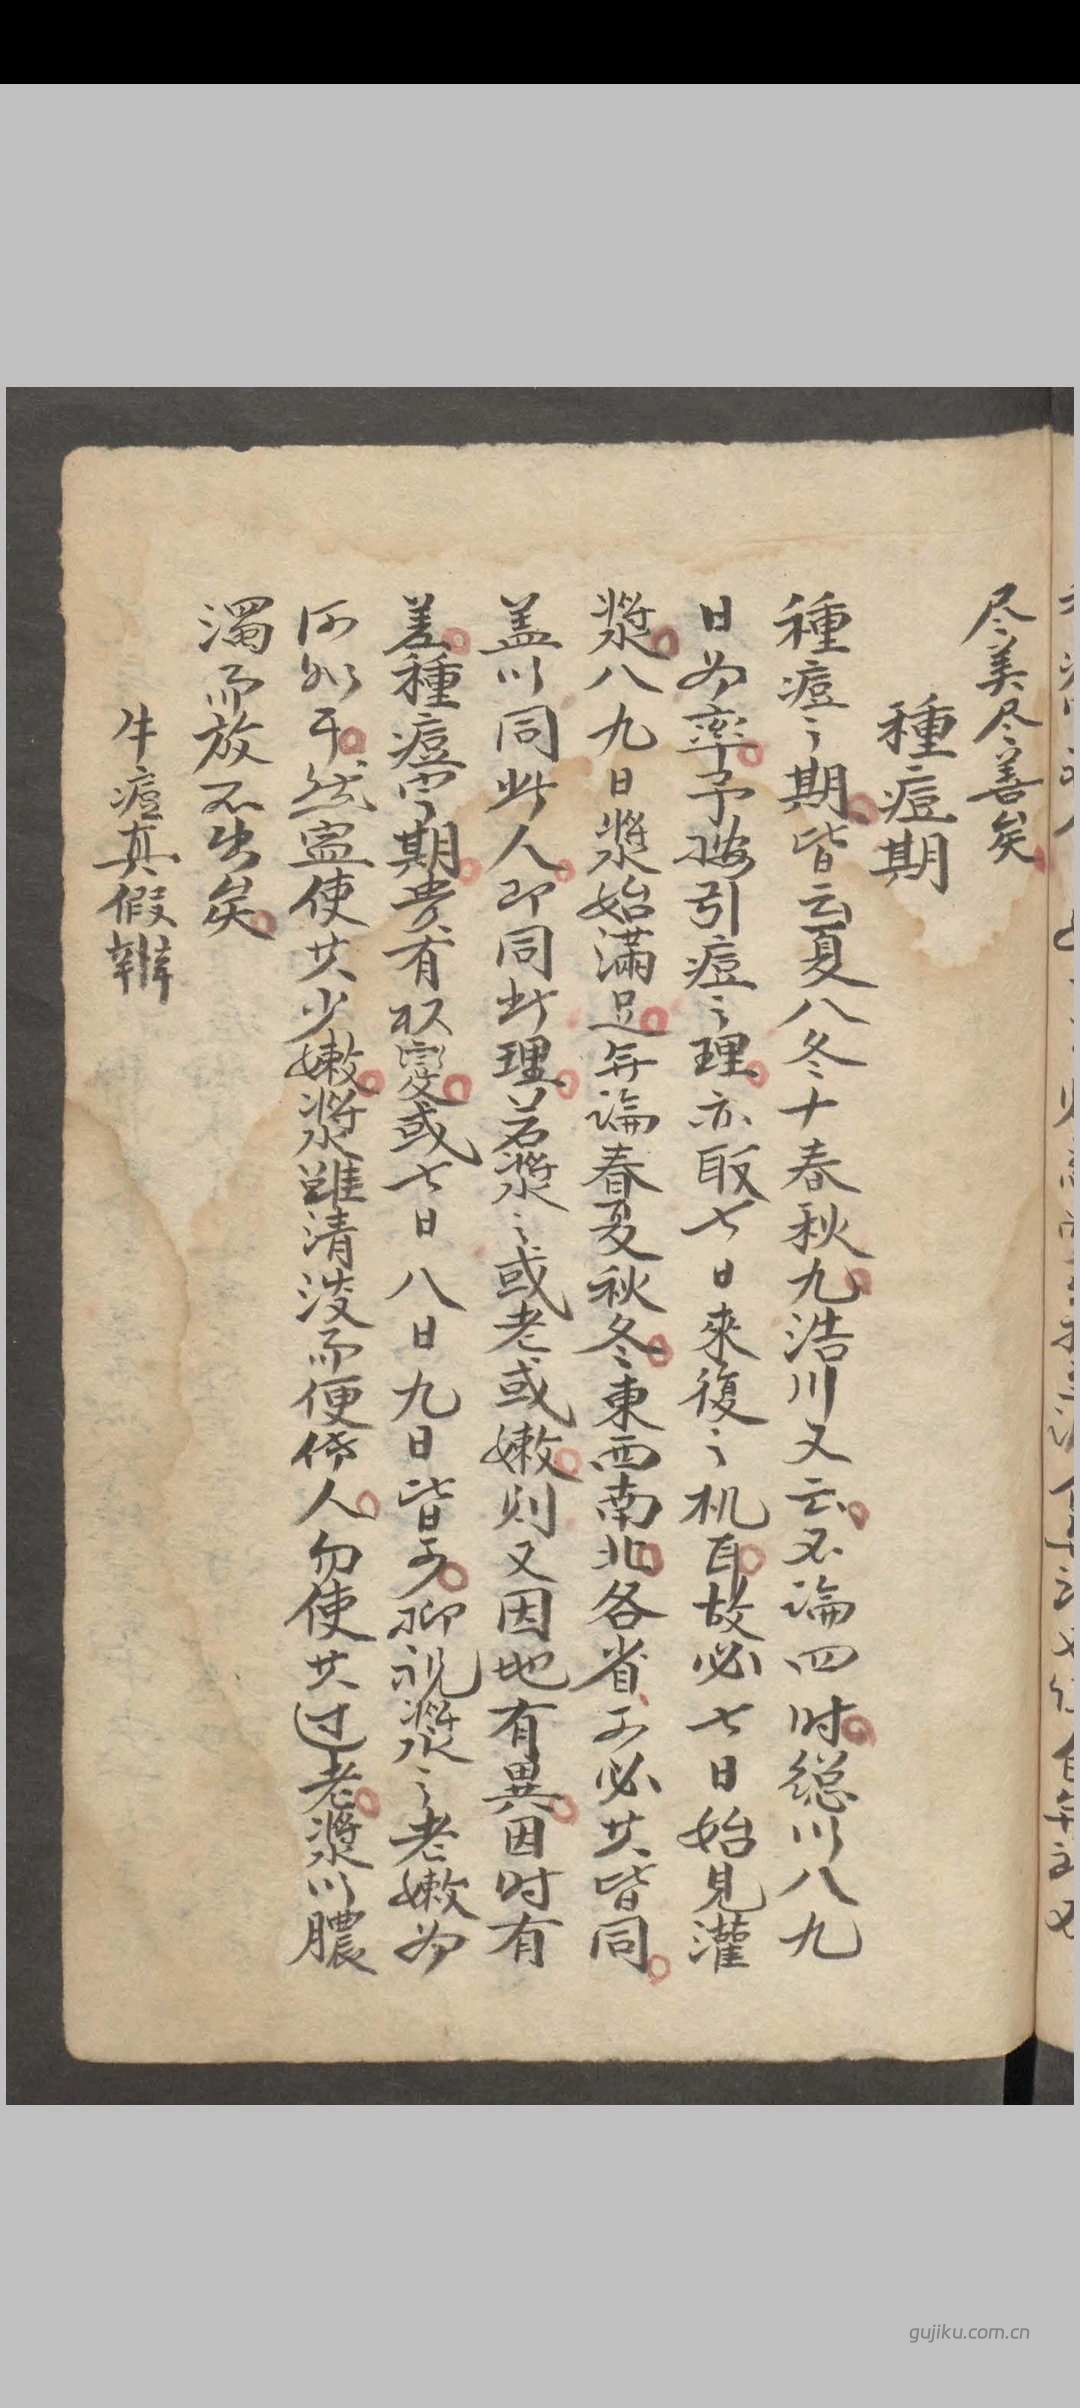 尽美尽善矣
種痘期
種痘之期皆云夏八冬十春秋九浩川又云不論四时總以八九
日为率予按引痘之理亦取七日來復之机耳故必七日始見灌
漿八九日漿始滿足弁論春夏秋冬東西南北各省不必其皆同
盖以同此人即同此理若漿之或老或嫩则又因地有異因时有
差種痘之期贵有权变或七日八日九日皆可抑視漿之老嫩为
何如耳然寍使其少嫩漿雖清淡而便傳人勿使其过老漿以膿
濁而放不出矣
牛痘真假辨
gujiku.com.cn